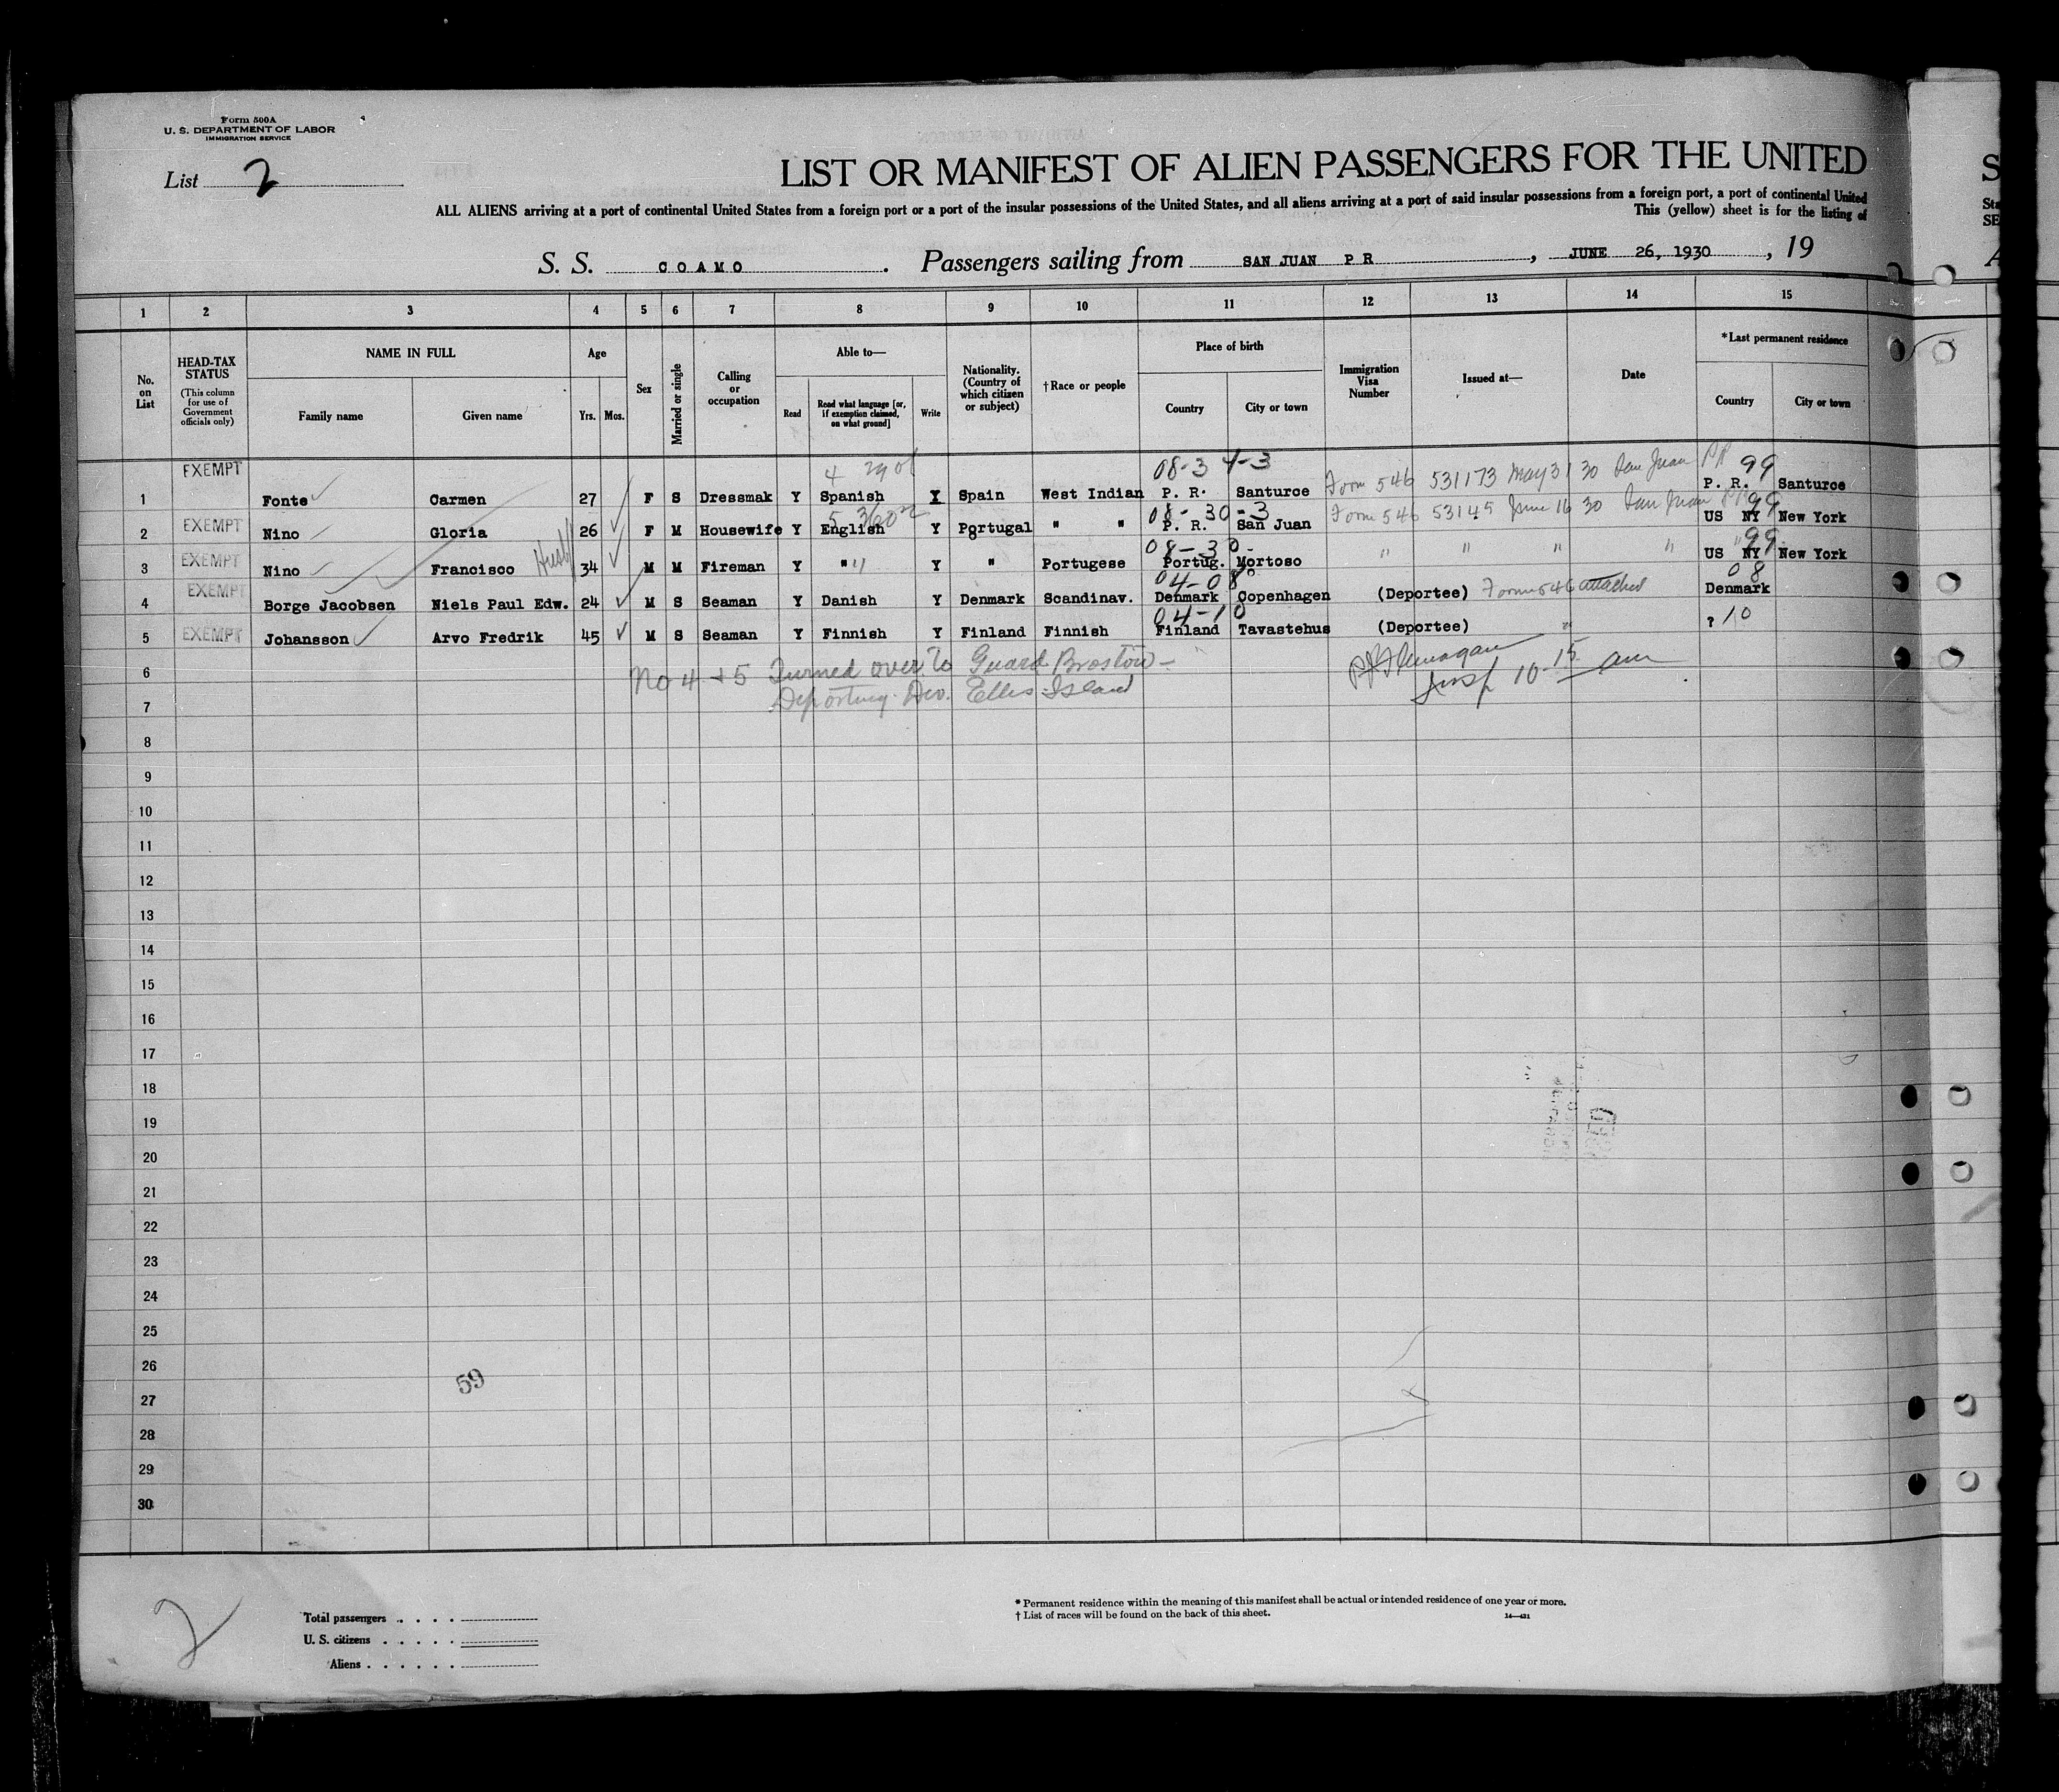 Form 500A
U. S. DEPARTMENT OF LABOR
IMMIGRATION SERVICE
List 2
LIST OR MANIFEST OF ALIEN PASSENGERS FOR THE UNITED
ALL ALIENS arriving at a port of continental United States from a foreign port or a port of the insular possessions of the United States, and all aliens arriving at a port of said insular possessions from a foreign port, a port of continental United
This (yellow) sheet is for the listing of
S. S. COAMO. Passengers sailing from SAN JUAN P R, JUNE 26, 1930, 19
1 2 3 4 5 6 7 8 9 10 11 12 13 14 15
No. on List
HEAD-TAX STATUS
(This column for use of Government officials only)
NAME IN FULL
Family name Given name
Age
Yrs. Mos.
Sex
Married or single
Calling or occupation
Able to—
Read Read what language [or, if exemption claimed, on what ground] Write
Nationality. (Country of which citizen or subject)
† Race or people
Place of birth
Country City or town
Immigration Visa Number
Issued at—
Date
* Last permanent residence
Country City or town
4 2901 08-3 4-3 99
1 EXEMPT Fonte Carmen 27 F S Dressmak Y Spanish Y Spain West Indian P. R. Santurce Form 546 531173 May 31 30 San Juan PR P. R. Santurce
08-30-3 99
2 EXEMPT Nino Gloria 26 F M Housewife Y English Y Portugal " " P. R. San Juan Form 546 53145 June 16 30 San Juan PR US NY New York
08-30- 99
3 EXEMPT Nino Francisco Husb 34 M M Fireman Y " " Y " Portugese Portug. Mortoso " " " " US NY New York
04-08 08
4 EXEMPT Borge Jacobsen Niels Paul Edw. 24 M S Seaman Y Danish Y Denmark Scandinav. Denmark Copenhagen (Deportee) Form 546 attached Denmark
04-10
5 EXEMPT Johansson Arvo Fredrik 45 M S Seaman Y Finnish Y Finland Finnish Finland Tavastehus (Deportee) " ? 10
6 No 4 + 5 Turned over to Guard Broston — 
7 Deporting Div. Ellis Island Insp 10-15 am
8
9
10
11
12
13
14
15
16
17
18
19
20
21
22
23
24
25
26
59
27
28
29
30
2
Total passengers
U. S. citizens
Aliens
* Permanent residence within the meaning of this manifest shall be actual or intended residence of one year or more.
† List of races will be found on the back of this sheet.
14—431